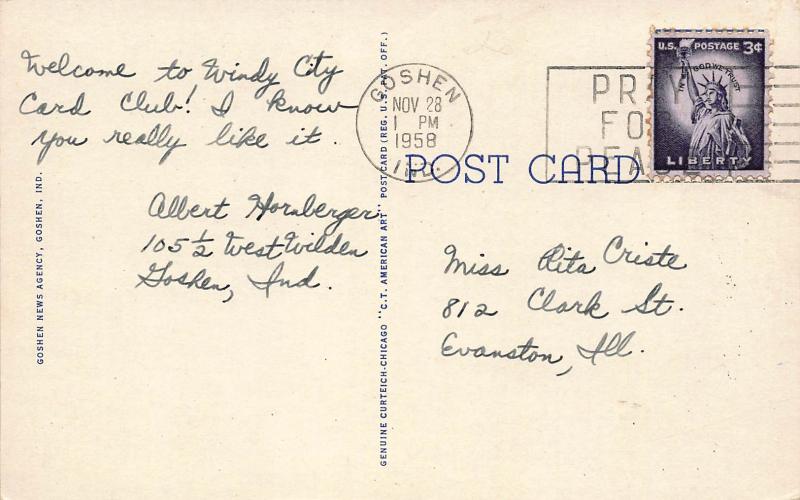 Welcome to Windy City
Card Club! I know
you really like it.
Albert Hornberger
105 1/2 West Wilden
Goshen, Ind.
GOSHEN NEWS AGENCY, GOSHEN, IND.
GENUINE CURTEICH-CHICAGO "C.T. AMERICAN ART" POST CARD (REG. U.S. PAT. OFF.)
GOSHEN
NOV 28
1 PM
1958
IND.
PRAY
FOR
PEACE
U.S. POSTAGE 3¢
IN GOD WE TRUST
LIBERTY
POST CARD
Miss Rita Criste
812 Clark St.
Evanston, Ill.